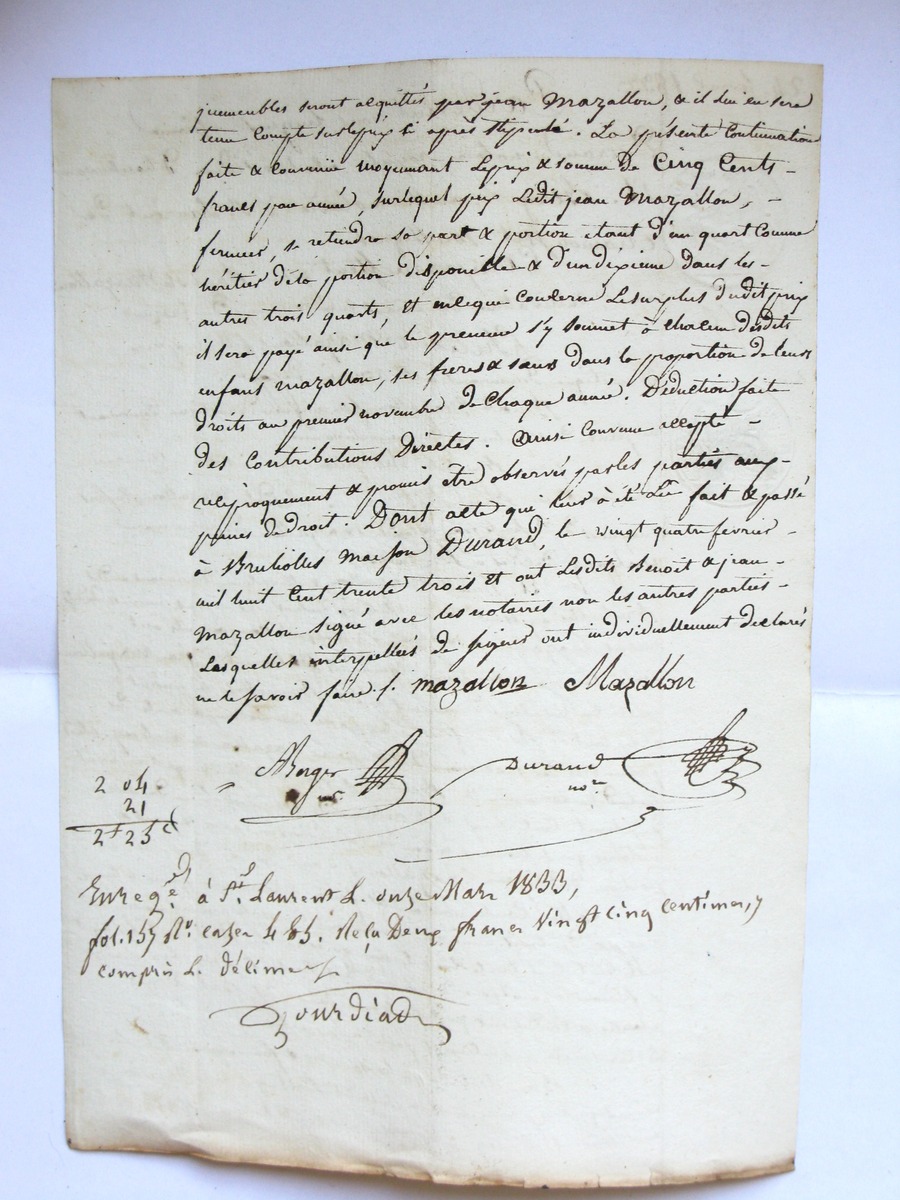 jmmeubles seront acquittés par jean Mazallon, & il lui en sera
tenu Compte sur le prix ci après stipulé. La présente Continuation
faite & Convenüe moyennant le prix & somme de Cinq Cents -
francs par année, sur lequel prix Ledit jean Mazallon, -
fermier, se retiendra sa part & portion étant d'un quart Comme
héritier de la portion disponible & d'un dixieme dans les -
autres trois quarts, Et en ce qui Concerne Le surplus dudit prix
il sera payé ainsi que le preneur s'y soumet à Chacun desdits
enfans Mazallon, ses freres & sœurs dans la proportion de leurs
droits au premier novembre de Chaque année. Déduction faite
des Contributions Directes. Ainsi Convenu accepté -
réciproquement & promis être observés par les parties aux -
peines de droit. Dont acte qui leur à été Lû fait & passé
à Brullolles maison Durand, le vingt quatre fevrier -
mil huit Cent trente trois Et ont Lesdits Benoit & jean -
Mazallon signé avec les notaires non les autres parties -
Lesquelles interpellées de signer ont individuellement declarés
ne le savoir faire ./. mazallon Mazallon
Berger
nre
Durand
nore
2 04
21
2f 25c
Enregé. à St. Laurent L. onze Mars 1833,
fol. 157 Ro. cases 4 & 5. Reçu Deux francs Vingt Cinq Centimes, y
compris L. décime
Jourdiad